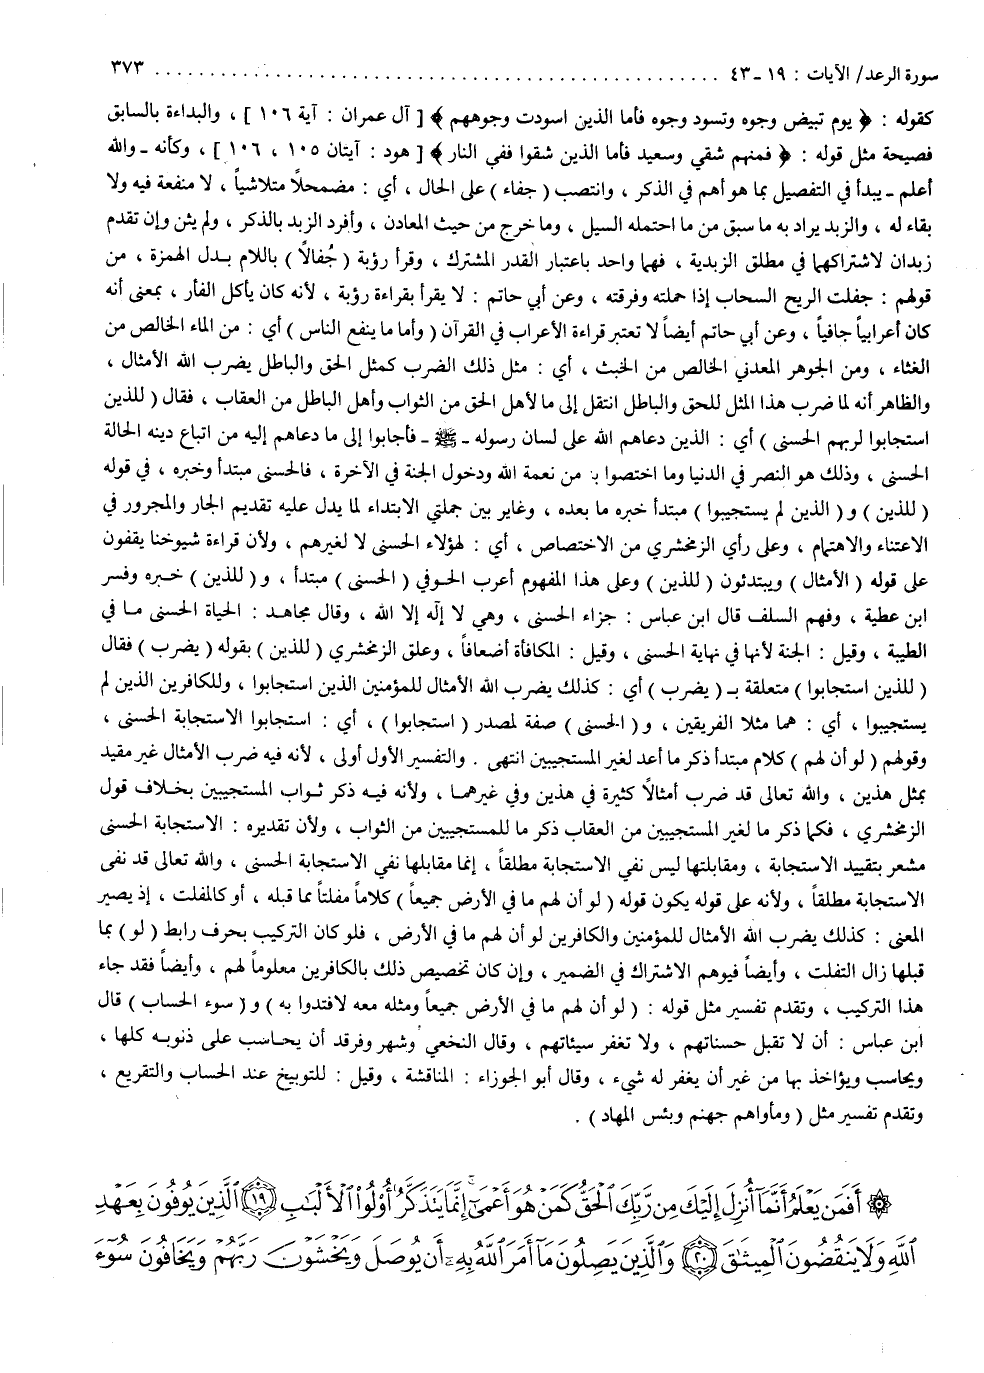 سورة الرعد/ الآيات : ١٩ ـ ٤٣ ........................................................ ٣٧٣
كقوله : ﴿ يوم تبيض وجوه وتسود وجوه فأما الذين اسودت وجوههم ﴾ [ آل عمران : آية ١٠٦ ] ، والبداءة بالسابق
فصيحة مثل قوله : ﴿ فمنهم شقي وسعيد فأما الذين شقوا ففي النار ﴾ [ هود : آيتان ١٠٥ ، ١٠٦ ] ، وكأنه ـ والله
أعلم ـ يبدأ في التفصيل بما هو أهم في الذكر ، وانتصب ( جفاء ) على الحال ، أي : مضمحلاً متلاشياً ، لا منفعة فيه ولا
بقاء له ، والزبد يراد به ما سبق من ما احتمله السيل ، وما خرج من حيث المعادن ، وأفرد الزبد بالذكر ، ولم يثن وإن تقدم
زبدان لاشتراكهما في مطلق الزبدية ، فهما واحد باعتبار القدر المشترك ، وقرأ رؤبة ( جُفالاً ) باللام بدل الهمزة ، من
قولهم : جفلت الريح السحاب إذا حملته وفرقته ، وعن أبي حاتم : لا يقرأ بقراءة رؤبة ، لأنه كان يأكل الفأر ، بمعنى أنه
كان أعرابياً جافياً ، وعن أبي حاتم أيضاً لا تعتبر قراءة الأعراب في القرآن ( وأما ما ينفع الناس ) أي : من الماء الخالص من
الغثاء ، ومن الجوهر المعدني الخالص من الخبث ، أي : مثل ذلك الضرب كمثل الحق والباطل يضرب الله الأمثال ،
والظاهر أنه لما ضرب هذا المثل للحق والباطل انتقل إلى ما لأهل الحق من الثواب وأهل الباطل من العقاب ، فقال ( للذين
استجابوا لربهم الحسنى ) أي : الذين دعاهم الله على لسان رسوله ـ ﷺ ـ فأجابوا إلى ما دعاهم إليه من اتباع دينه الحالة
الحسنى ، وذلك هو النصر في الدنيا وما اختصوا به من نعمة الله ودخول الجنة في الآخرة ، فالحسنى مبتدأ وخبره ، في قوله
( للذين ) و ( الذين لم يستجيبوا ) مبتدأ خبره ما بعده ، وغاير بين جملتي الابتداء لما يدل عليه تقديم الجار والمجرور في
الاعتناء والاهتمام ، وعلى رأي الزمخشري من الاختصاص ، أي : لهؤلاء الحسنى لا لغيرهم ، ولأن قراءة شيوخنا يقفون
على قوله ( الأمثال ) ويبتدئون ( للذين ) وعلى هذا المفهوم أعرب الحوفي ( الحسنى ) مبتدأ ، و ( للذين ) خبره وفسر
ابن عطية ، وفهم السلف قال ابن عباس : جزاء الحسنى ، وهي لا إلٰه إلا الله ، وقال مجاهد : الحياة الحسنى ما في
الطيبة ، وقيل : الجنة لأنها في نهاية الحسنى ، وقيل : المكافأة أضعافاً ، وعلق الزمخشري ( للذين ) بقوله ( يضرب ) فقال
( للذين استجابوا ) متعلقة بـ ( يضرب ) أي : كذلك يضرب الله الأمثال للمؤمنين الذين استجابوا ، وللكافرين الذين لم
يستجيبوا ، أي : هما مثلا الفريقين ، و ( الحسنى ) صفة لمصدر ( استجابوا ) ، أي : استجابوا الاستجابة الحسنى ،
وقولهم ( لو أن لهم ) كلام مبتدأ ذكر ما أعد لغير المستجيبين انتهى . والتفسير الأول أولى ، لأنه فيه ضرب الأمثال غير مقيد
بمثل هذين ، والله تعالى قد ضرب أمثالاً كثيرة في هذين وفي غيرهما ، ولأنه فيه ذكر ثواب المستجيبين بخلاف قول
الزمخشري ، فكما ذكر ما لغير المستجيبين من العقاب ذكر ما للمستجيبين من الثواب ، ولأن تقديره : الاستجابة الحسنى
مشعر بتقييد الاستجابة ، ومقابلتها ليس نفي الاستجابة مطلقاً ، إنما مقابلها نفي الاستجابة الحسنى ، والله تعالى قد نفى
الاستجابة مطلقاً ، ولأنه على قوله يكون قوله ( لو أن لهم ما في الأرض جميعاً ) كلاماً مفلتاً مما قبله ، أو كالمفلت ، إذ يصير
المعنى : كذلك يضرب الله الأمثال للمؤمنين والكافرين لو أن لهم ما في الأرض ، فلو كان التركيب بحرف رابط ( لو ) بما
قبلها زال التفلت ، وأيضاً فيوهم الاشتراك في الضمير ، وإن كان تخصيص ذلك بالكافرين معلوماً لهم ، وأيضاً فقد جاء
هذا التركيب ، وتقدم تفسير مثل قوله : ( لو أن لهم ما في الأرض جميعاً ومثله معه لافتدوا به ) و ( سوء الحساب ) قال
ابن عباس : أن لا تقبل حسناتهم ، ولا تغفر سيئاتهم ، وقال النخعي وشهر وفرقد أن يحاسب على ذنوبه كلها ،
ويحاسب ويؤاخذ بها من غير أن يغفر له شيء ، وقال أبو الجوزاء : المناقشة ، وقيل : للتوبيخ عند الحساب والتقريع ،
وتقدم تفسير مثل ( ومأواهم جهنم وبئس المهاد ) .
۞ أَفَمَن يَعْلَمُ أَنَّمَآ أُنزِلَ إِلَيْكَ مِن رَّبِّكَ ٱلْحَقُّ كَمَنْ هُوَ أَعْمَىٰٓ إِنَّمَا يَتَذَكَّرُ أُو۟لُوا۟ ٱلْأَلْبَٰبِ ١٩ ٱلَّذِينَ يُوفُونَ بِعَهْدِ
ٱللَّهِ وَلَا يَنقُضُونَ ٱلْمِيثَٰقَ ٢٠ وَٱلَّذِينَ يَصِلُونَ مَآ أَمَرَ ٱللَّهُ بِهِۦٓ أَن يُوصَلَ وَيَخْشَوْنَ رَبَّهُمْ وَيَخَافُونَ سُوٓءَ